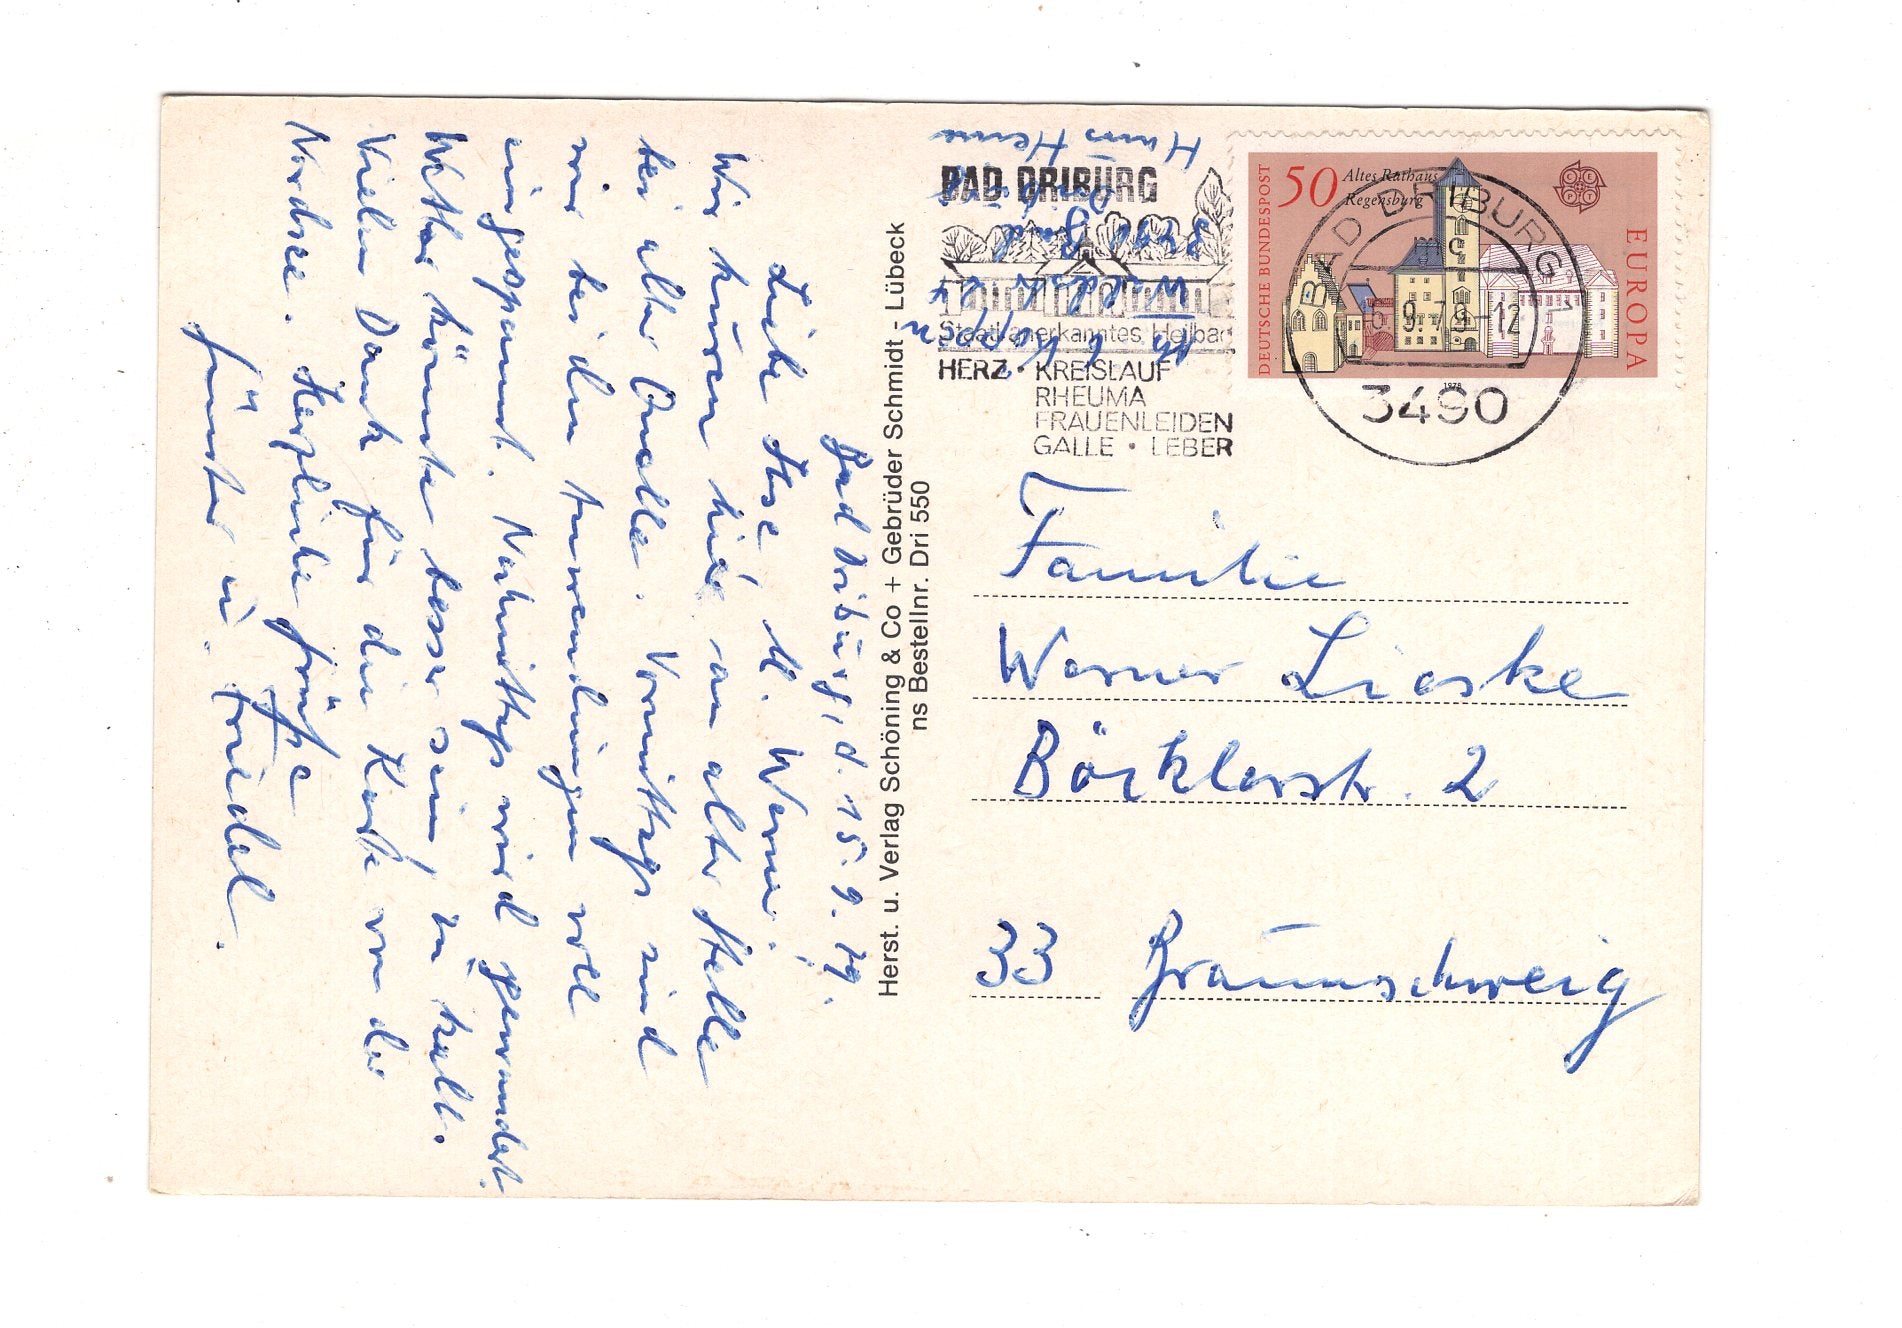 Bad Driburg, d. 15. 9. 79.
Liebe Ilse u. Werner.
Wir kuren hier an alter Stelle
bei alter Quelle. Vormittags sind
wir bei den Anwendungen voll
eingespannt. Nachmittags wird gewandert.
Wetter könnte besser sein, zu kalt.
Vielen Dank für die Karte von der
Nordsee. Herzliche Grüße
Günter u. Friedel.
Herst. u. Verlag Schöning & Co + Gebrüder Schmidt - Lübeck
ns Bestellnr. Dri 550
BAD DRIBURG
Staatl. anerkanntes Heilbad
HERZ • KREISLAUF
RHEUMA
FRAUENLEIDEN
GALLE • LEBER
DEUTSCHE BUNDESPOST
50 Altes Rathaus
Regensburg
CEPT
EUROPA
1978
BAD DRIBURG 1
mc
9.79-12
3490
Haus
Bad
Familie
Werner Lieske
Böcklerstr. 2
33 Braunschweig